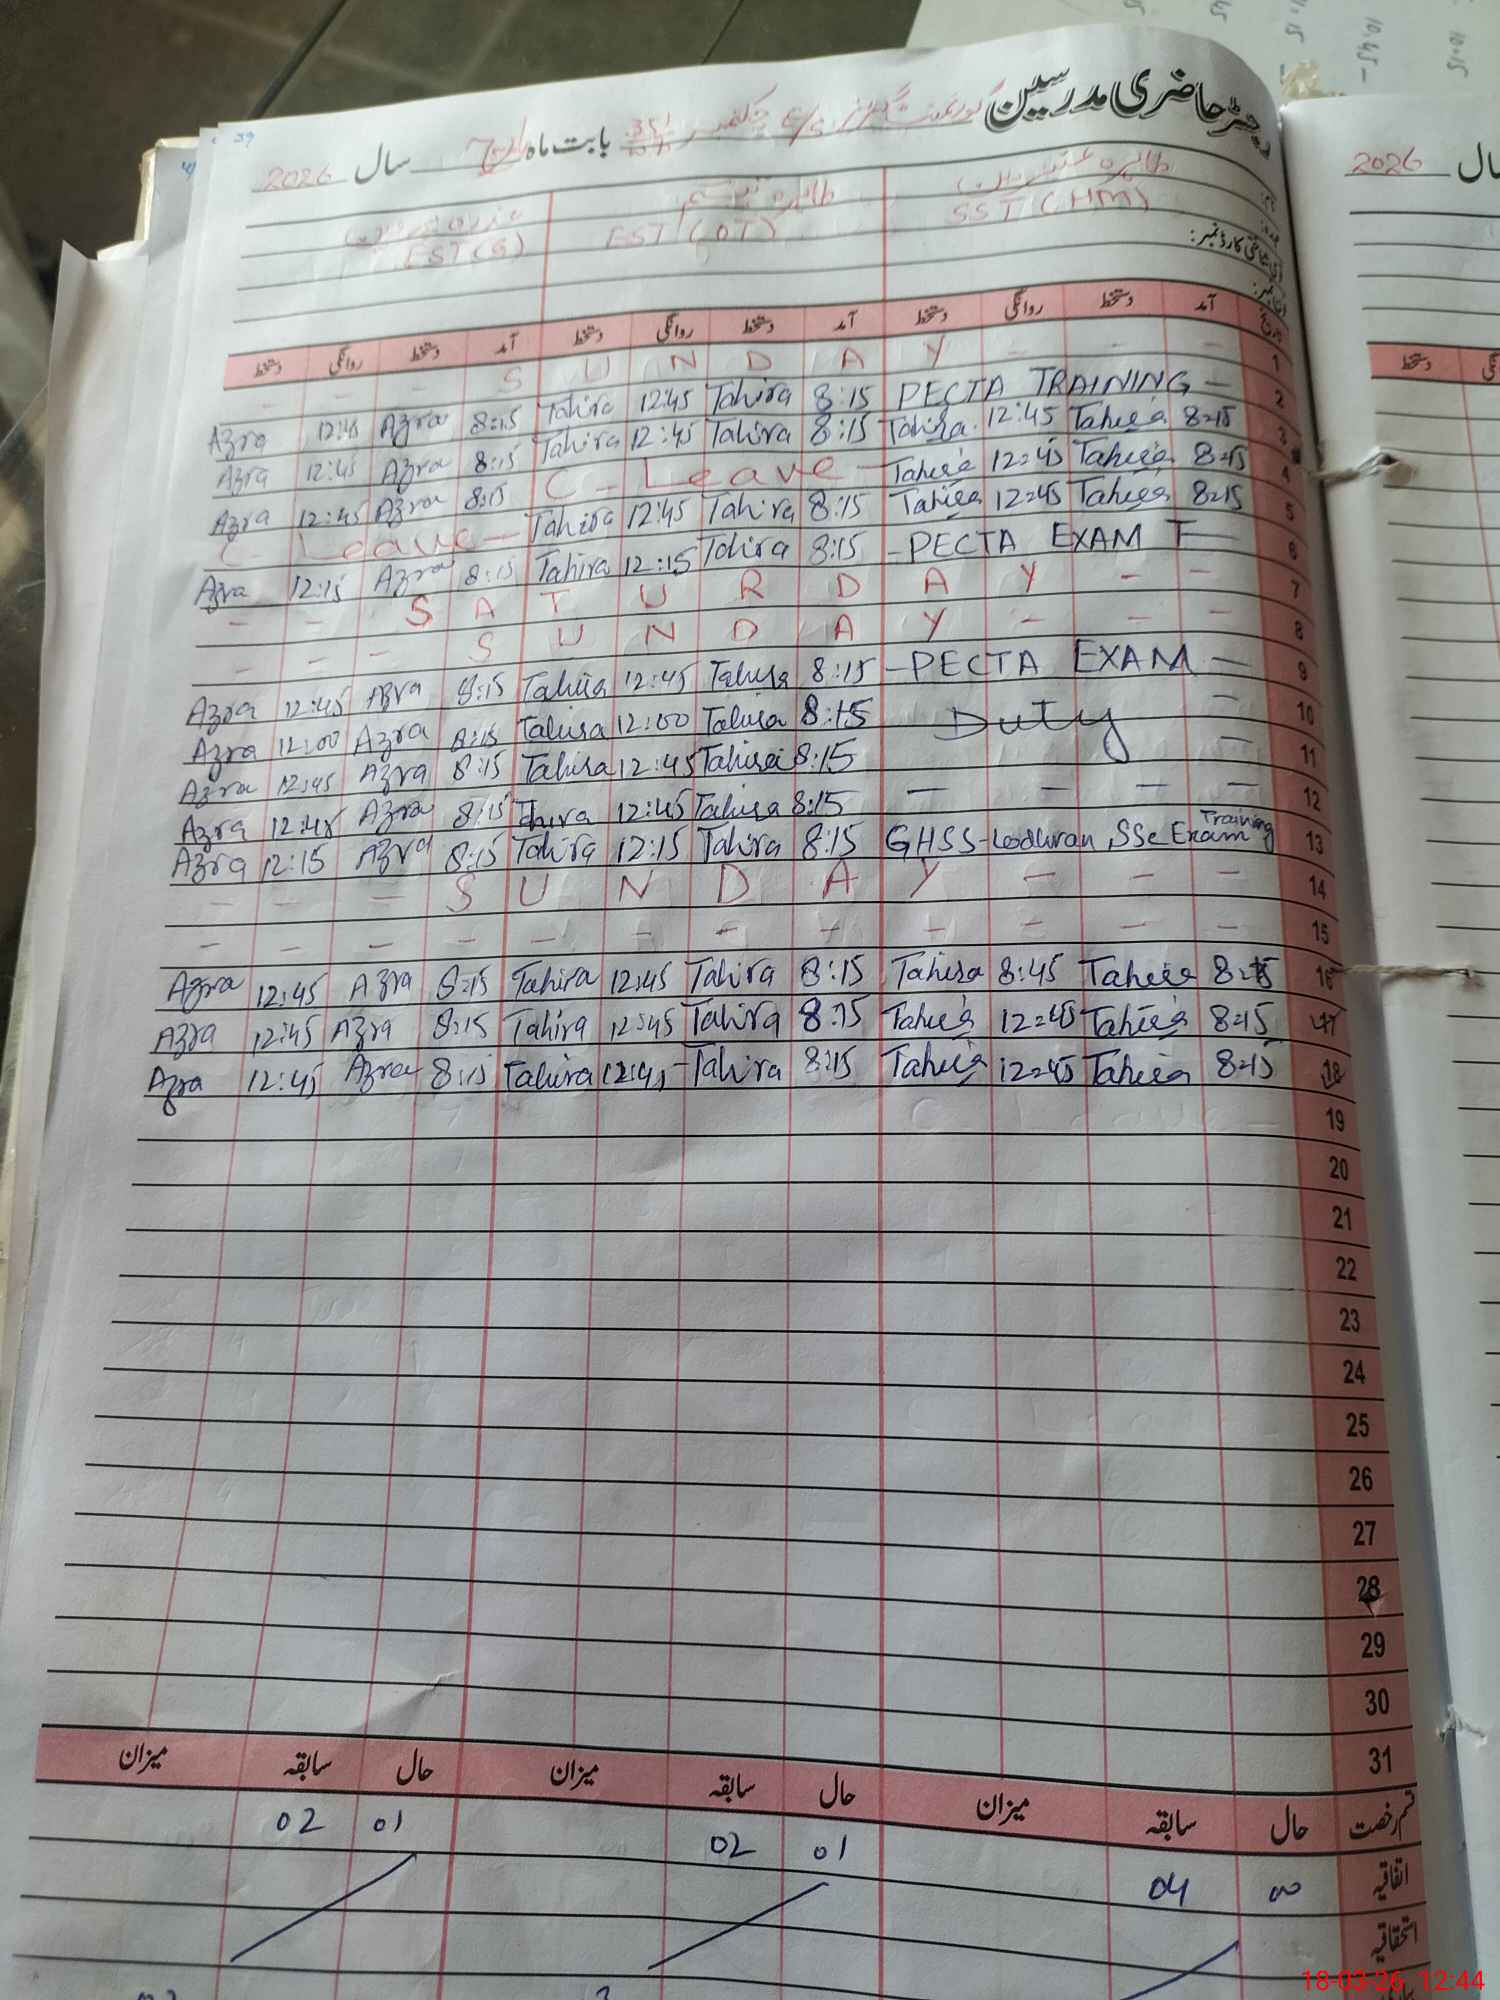 رجسٹر حاضری مدرسین گورنمنٹ گرلز E/S چکنمبر 351 بابت ماہ مارچ سال 2026
SST (HM) EST (OT) EST (G)
آمد دستخط روانگی دستخط آمد دستخط روانگی دستخط آمد دستخط روانگی دستخط
1 - - - Y A D N U S - -
2 - PECTA TRAINING 8:15 Tahira 12:45 Tahira 8:15 Azra 12:45 Azra
3 8:15 Tahira 12:45 Tahira 8:15 Tahira 12:45 Tahira 8:15 Azra 12:45 Azra
4 8:15 Tahira 12:45 Tahira C - Leave - 8:15 Azra 12:45 Azra
5 8:15 Tahira 12:45 Tahira 8:15 Tahira 12:45 Tahira C - Leave -
6 - PECTA EXAM T 8:15 Tahira 12:15 Tahira 8:15 Azra 12:15 Azra
7 - - S A T U R D A Y - -
8 - - - S U N D A Y - - -
9 - PECTA EXAM - 8:15 Tahira 12:45 Tahira 8:15 Azra 12:45 Azra
10 - Duty 8:15 Tahira 12:00 Tahira 8:15 Azra 12:00 Azra
11 - 8:15 Tahira 12:45 Tahira 8:15 Azra 12:45 Azra
12 - - - - 8:15 Tahira 12:45 Tahira 8:15 Azra 12:45 Azra
13 GHSS-Lodhran SSC Exam Training 8:15 Tahira 12:15 Tahira 8:15 Azra 12:15 Azra
14 - - - S U N D A Y - - -
15 - - - - - - - - - - - -
16 8:15 Tahira 8:45 Tahira 8:15 Tahira 12:45 Tahira 8:15 Azra 12:45 Azra
17 8:15 Tahira 12:45 Tahira 8:15 Tahira 12:45 Tahira 8:15 Azra 12:45 Azra
18 8:15 Tahira 12:45 Tahira 8:15 Tahira 12:45 Tahira 8:15 Azra 12:45 Azra
19
20
21
22
23
24
25
26
27
28
29
30
31
قسم رخصت حال سابقہ میزان حال سابقہ میزان حال سابقہ میزان
اتفاقیہ 04 01 02 01 02
استحقاقیہ
2026 سال
دستخط
18-03-26 12:44